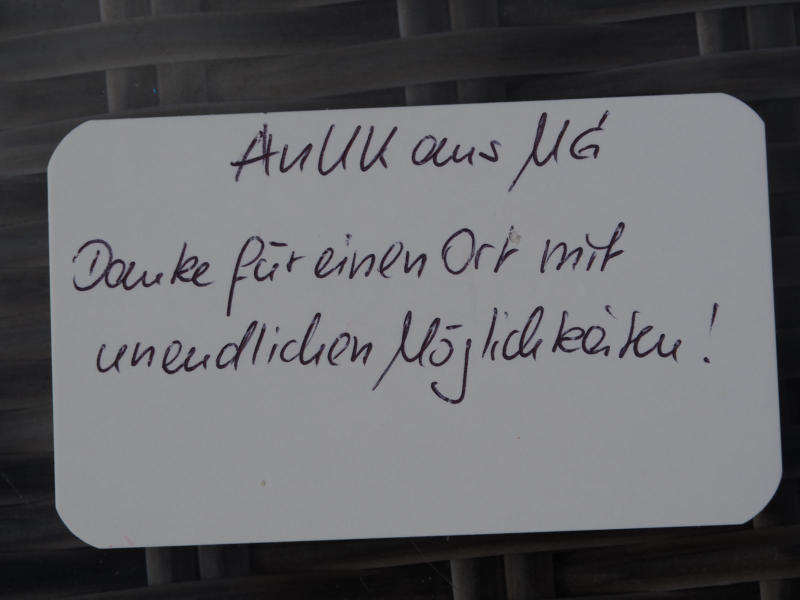 AnUK aus MG
Danke für einen Ort mit
unendlichen Möglichkeiten!